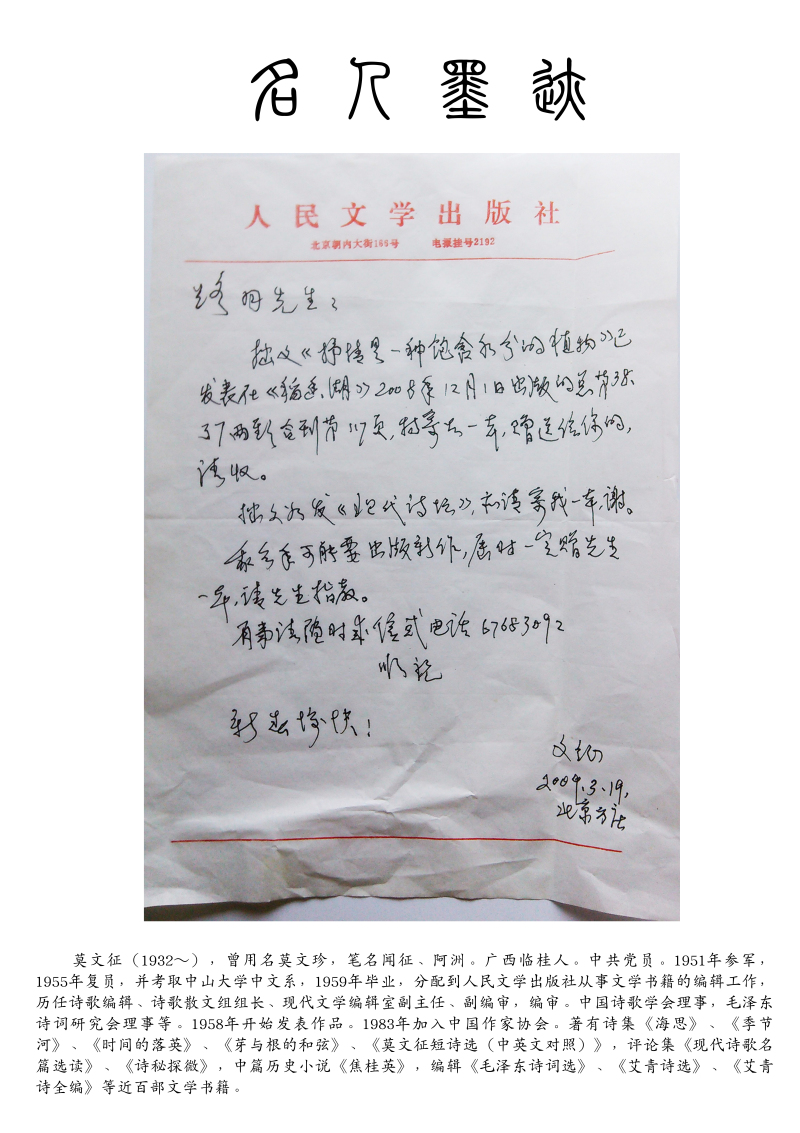 名人墨迹
人民文学出版社
北京朝内大街166号 电报挂号2192
先生：
拙文《抒情是一种饱含水分的植物》已
发表在《 湖》2008年12月1日出版的总第38
请收。
拙文如发《 代诗坛》，亦请寄我一本，谢。
我今年可能要出版新作，届时一定赠先生
一本，请先生指教。
有事请随时来信或电话67683092
顺祝
新春愉快！
2009.3.19.
北京方庄
莫文征（1932～），曾用名莫文珍，笔名闻征、阿洲。广西临桂人。中共党员。1951年参军，
1955年复员，并考取中山大学中文系，1959年毕业，分配到人民文学出版社从事文学书籍的编辑工作，
历任诗歌编辑、诗歌散文组组长、现代文学编辑室副主任、副编审，编审。中国诗歌学会理事，毛泽东
诗词研究会理事等。1958年开始发表作品。1983年加入中国作家协会。著有诗集《海思》、《季节
河》、《时间的落英》、《芽与根的和弦》、《莫文征短诗选（中英文对照）》，评论集《现代诗歌名
篇选读》、《诗秘探微》，中篇历史小说《焦桂英》，编辑《毛泽东诗词选》、《艾青诗选》、《艾青
诗全编》等近百部文学书籍。